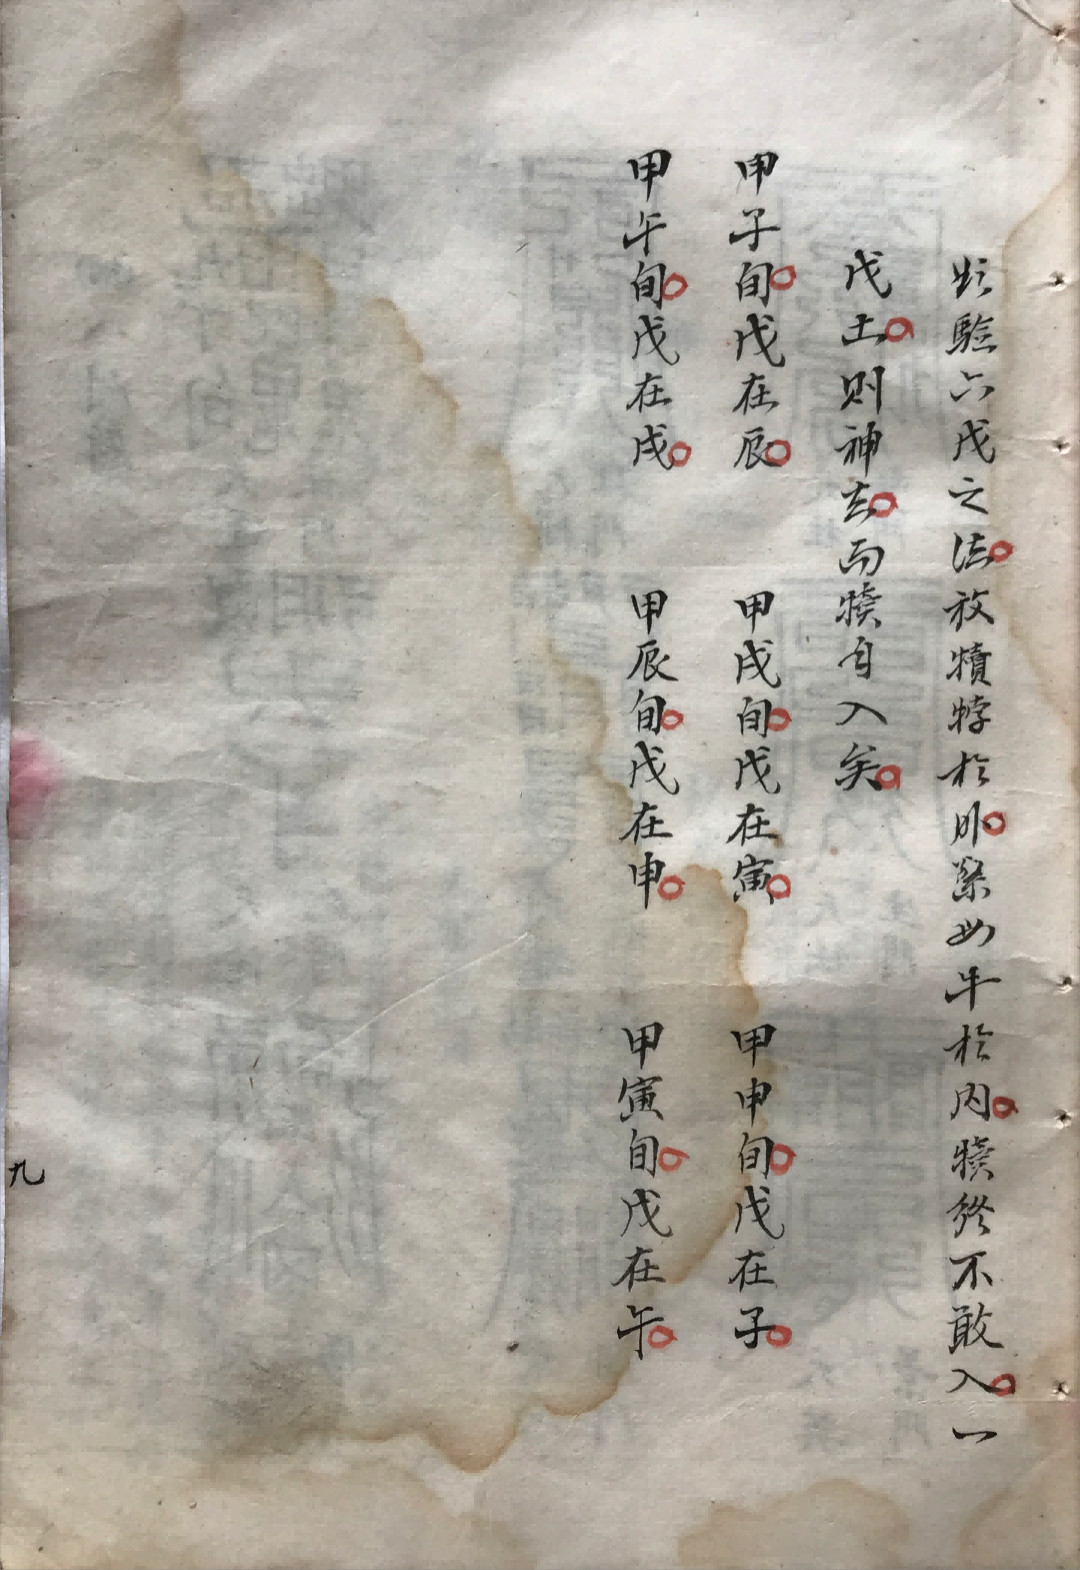 欤驗六戊之法放犢牸於外繫母牛於内犢終不敢入一
戊土则神去而犢自入矣
甲子旬戊在辰 甲戌旬戊在寅 甲申旬戊在子
甲午旬戊在戌 甲辰旬戊在申 甲寅旬戊在午
九